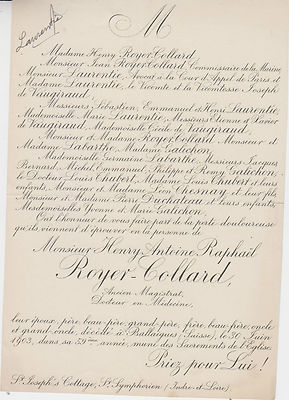 Laurentie
M
Madame Henry Royer-Collard,
Monsieur Jean Royer-Collard, Commissaire de la Marine,
Monsieur Laurentie, Avocat à la Cour d'Appel de Paris et
Madame Laurentie, le Vicomte et la Vicomtesse Joseph
de Vaugiraud,
Messieurs Sébastien, Emmanuel et Henri Laurentie,
Mademoiselle Marie Laurentie, Messieurs Etienne et Xavier
de Vaugiraud, Mademoiselle Cécile de Vaugiraud,
Monsieur et Madame Royer-Collard, Monsieur et
Madame Labarthe, Madame Galichon,
Mademoiselle Germaine Labarthe, Messieurs Jacques
Bernard, Michel, Emmanuel, Philippe et Remy Galichon,
le Docteur Louis Chubert, Madame Louis Chubert et leurs
enfants, Monsieur et Madame Léon Chesnay et leur fils
Monsieur et Madame Pierre Duchateau et leurs enfants,
Mesdemoiselles Yvonne et Marie Galichon,
Ont l'honneur de vous faire part de la perte douloureuse
qu'ils viennent d'éprouver en la personne de
Monsieur Henry-Antoine Raphaël
Royer-Collard,
Ancien Magistrat,
Docteur en Médecine,
leur époux, père, beau-père, grand-père, frère, beau-frère, oncle
et grand-oncle, décédé à Ballaigues (Suisse), le 30 Juin
1903, dans sa 59ème année, muni des Sacrements de l'Eglise.
Priez pour Lui !
St Joseph's Cottage, St Symphorien (Indre-et-Loire)